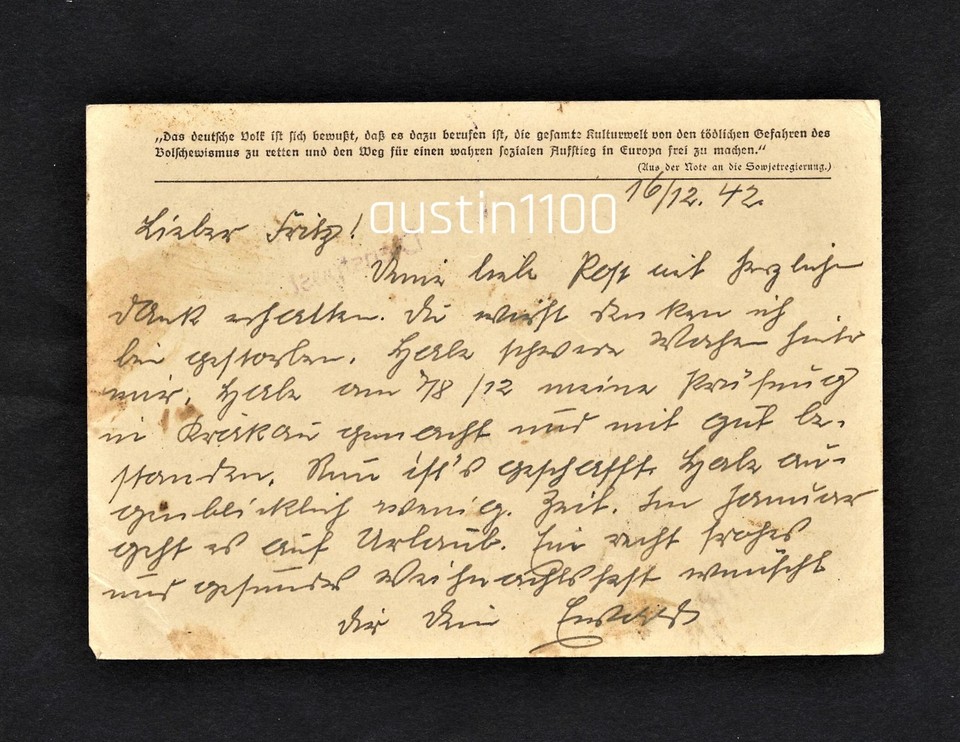 „Das deutsche Volk ist sich bewußt, daß es dazu berufen ist, die gesamte Kulturwelt von den tödlichen Gefahren des
Bolschewismus zu retten und den Weg für einen wahren sozialen Aufstieg in Europa frei zu machen.“
(Aus der Note an die Sowjetregierung.)
16/12. 42.
austin1100
Lieber Fritz!
Deine liebe Post mit herzlichen
Dank erhalten. Du wirst denken ich
bin gestorben. Habe schwere Wochen hinter
mir. Habe am 7/8 /12 meine Prüfung
in Krakau gemacht und mit gut be-
standen. Nun ist's geschafft. Habe au-
genblicklich wenig. Zeit. Im Januar
geht es auf Urlaub. Ein recht frohes
und gesundes Weihnachtsfest wünscht
dir Dein